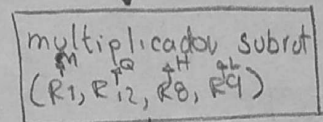 multiplicador subrut
M Q H L
(R1, R12, R8, R9)